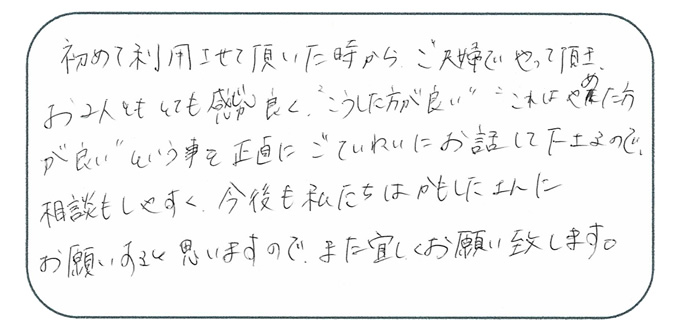 初めて利用させて頂いた時から、ご夫婦でやって頂き、
お2人ともとても感じが良く、"こうした方が良い" "これはやめた方
が良い"という事を正直にごていねいにお話して下さるので、
相談もしやすく、今後も私たちはかもしたさんに
お願いすると思いますので、また宜しくお願い致します。